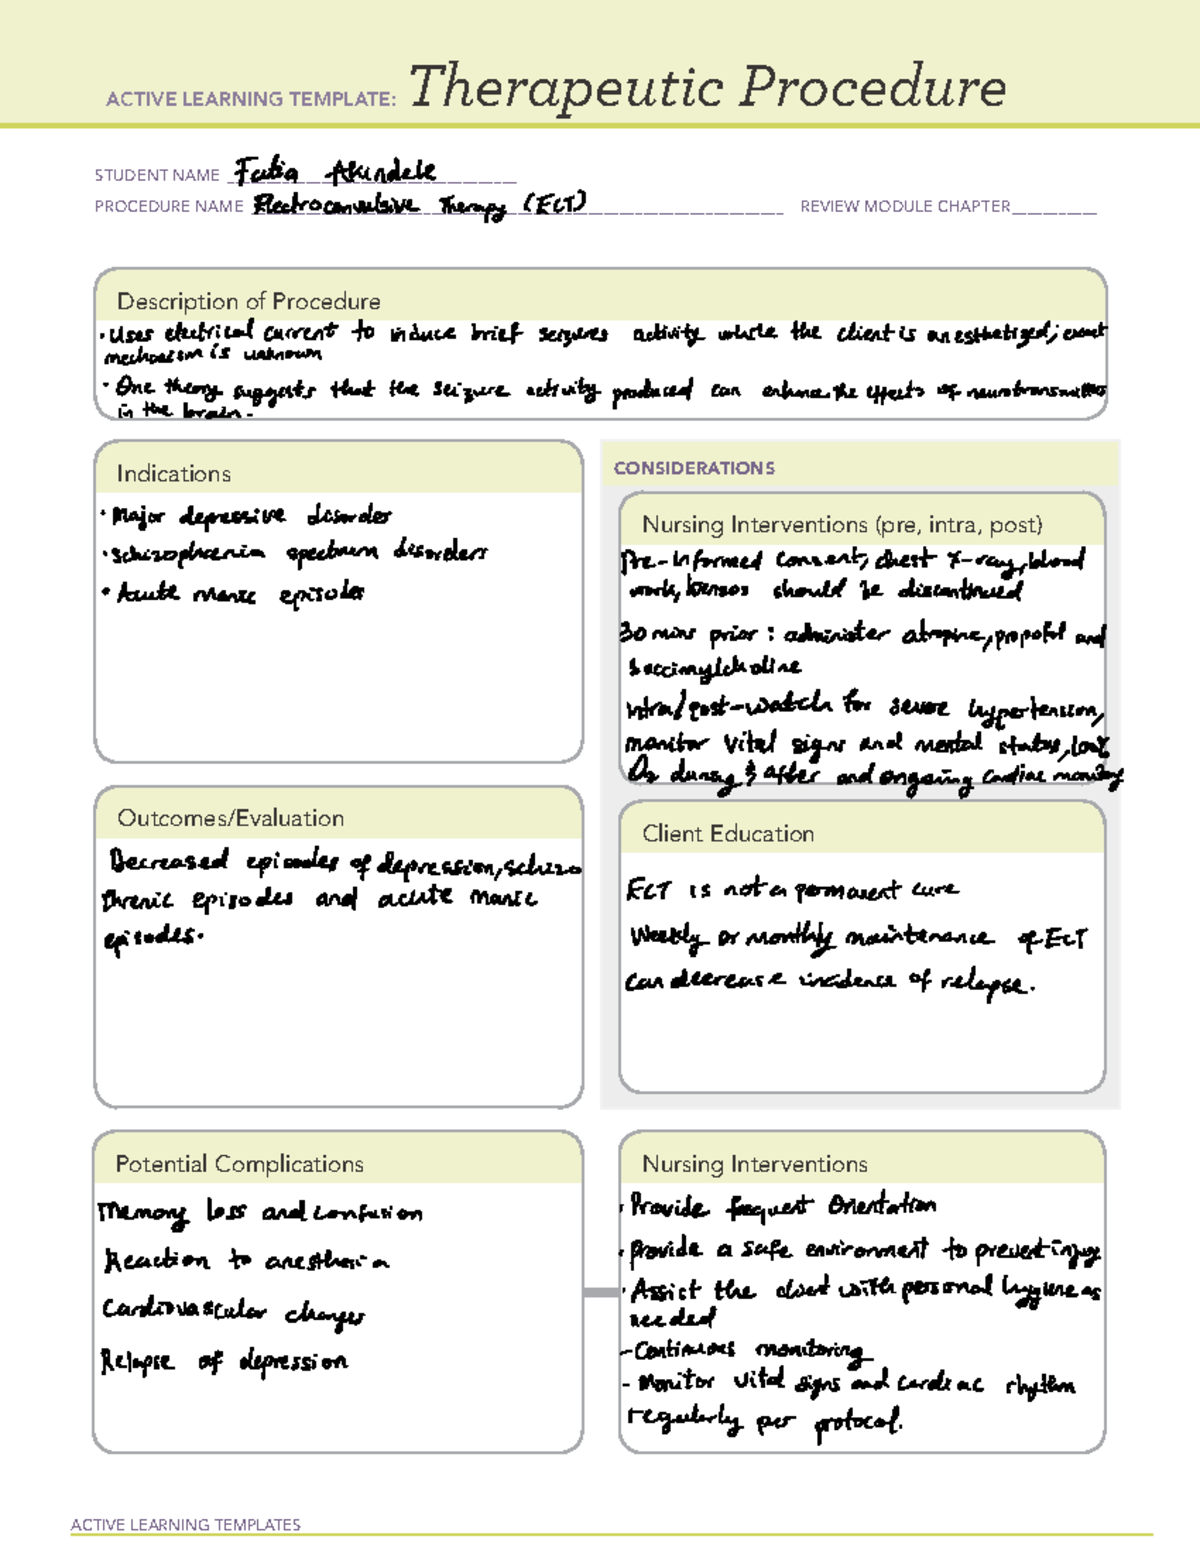 ACTIVE LEARNING TEMPLATE: Therapeutic Procedure
STUDENT NAME Fatia Akindele
PROCEDURE NAME Electroconvulsive Therapy (ECT) REVIEW MODULE CHAPTER
Description of Procedure
· Uses electrical current to induce brief seizures activity while the client is anesthetized; exact
mechanism is unknown
· One theory suggests that the seizure activity produced can enhance the effects of neurotransmitters
in the brain.
Indications
· Major depressive disorder
· schizophrenia spectrum disorders
· Acute manic episodes
CONSIDERATIONS
Nursing Interventions (pre, intra, post)
Pre-Informed consent, chest X-ray, blood
work, benzos should be discontinued
30 mins prior : administer atropine, propofol and
succinylcholine
Intra/post-watch for severe hypertension,
monitor vital signs and mental status, 100%
O2 during & after and ongoing cardiac monitoring
Outcomes/Evaluation
Decreased episodes of depression, schizo
phrenic episodes and acute manic
episodes.
Client Education
ECT is not a permanent cure
Weekly or monthly maintenance of ECT
can decrease incidence of relapse.
Potential Complications
Memory loss and confusion
Reaction to anesthesia
Cardiovascular changes
Relapse of depression
Nursing Interventions
· Provide frequent Orientation
· Provide a safe environment to prevent injury
· Assist the client with personal hygiene as
needed
- Continuous monitoring
- Monitor vital signs and cardiac rhythm
regularly per protocol.
ACTIVE LEARNING TEMPLATES